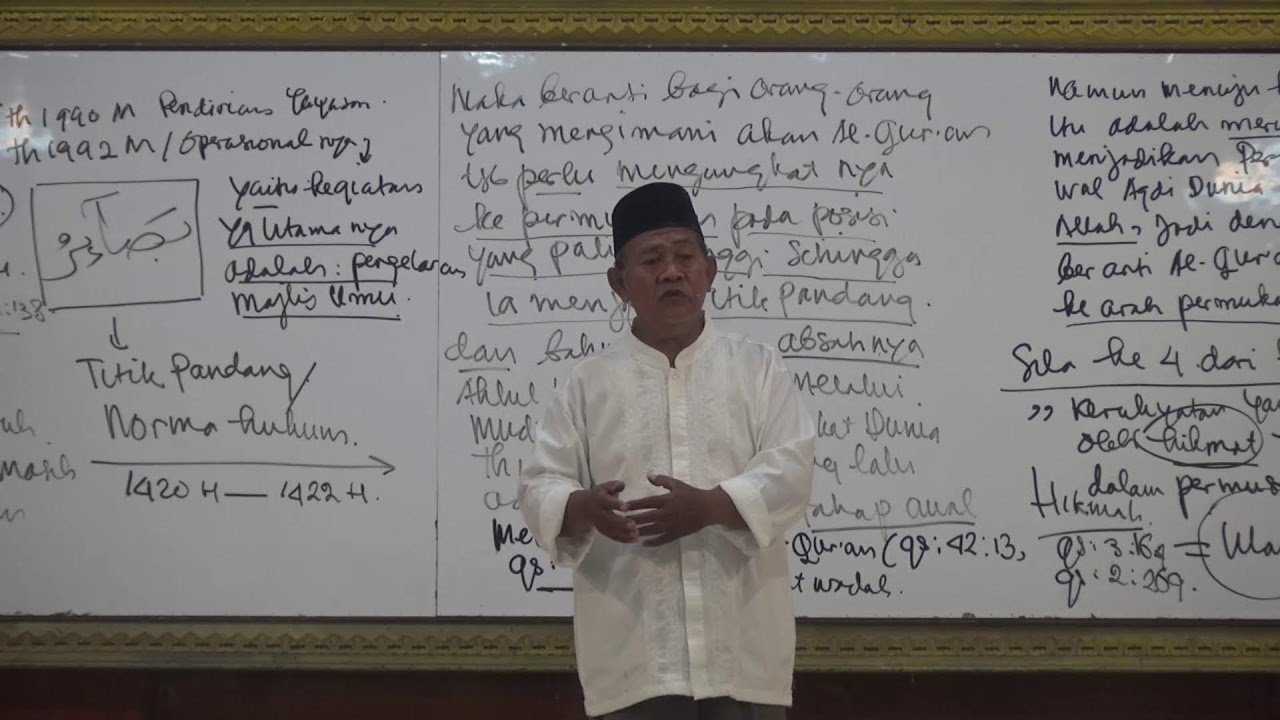 th 1990 M Pendirian Yayasan.
th 1992 M / Operasional nya
yaitu kegiatan
yg utama nya
adalah : pengelaran
Majlis Ilmu.
:138
Titik Pandang /
Norma hukum.
1420 H — 1422 H.
Maka berarti bagi orang-orang
yang mengimani akan Al-Qur'an
perlu mengungkat nya
ke permu pada posisi
yang pali ggi sehingga
ia menj titik pandang.
dan bahw absahnya
Ahlul melalui.
Mud kat Dunia
th g lalu
tahap awal
Me Qur'an (qs: 42:13,
qs: t wadah.
Namun menuju
itu adalah meru
menjadikan Per
Wal Aqdi Dunia
Allah, Jadi den
berarti Al-Qur'a
ke arah permuka
Sila ke 4 dari
" Kerakyatan Ya
oleh hikmat
dalam permus
Hikmah.
qs: 3:164 = Ula
qs: 2:269.